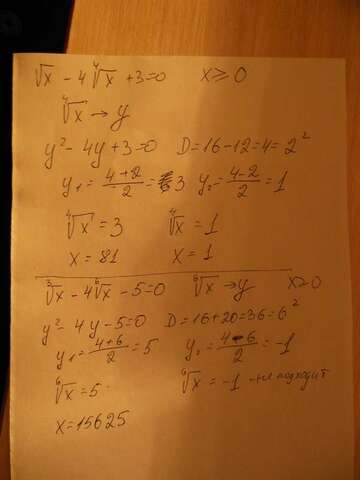 √x - 4 ∜x + 3 = 0 x ≥ 0
∜x → y
y² - 4y + 3 = 0 D = 16 - 12 = 4 = 2²
y₁ = (4+2)/2 = 3 y₂ = (4-2)/2 = 1
∜x = 3 ∜x = 1
x = 81 x = 1
∛x - 4 ⁶√x - 5 = 0 ⁶√x → y x ≥ 0
y² - 4y - 5 = 0 D = 16 + 20 = 36 = 6²
y₁ = (4+6)/2 = 5 y₂ = (4-6)/2 = -1
⁶√x = 5 ⁶√x = -1 - не подходит
x = 15625